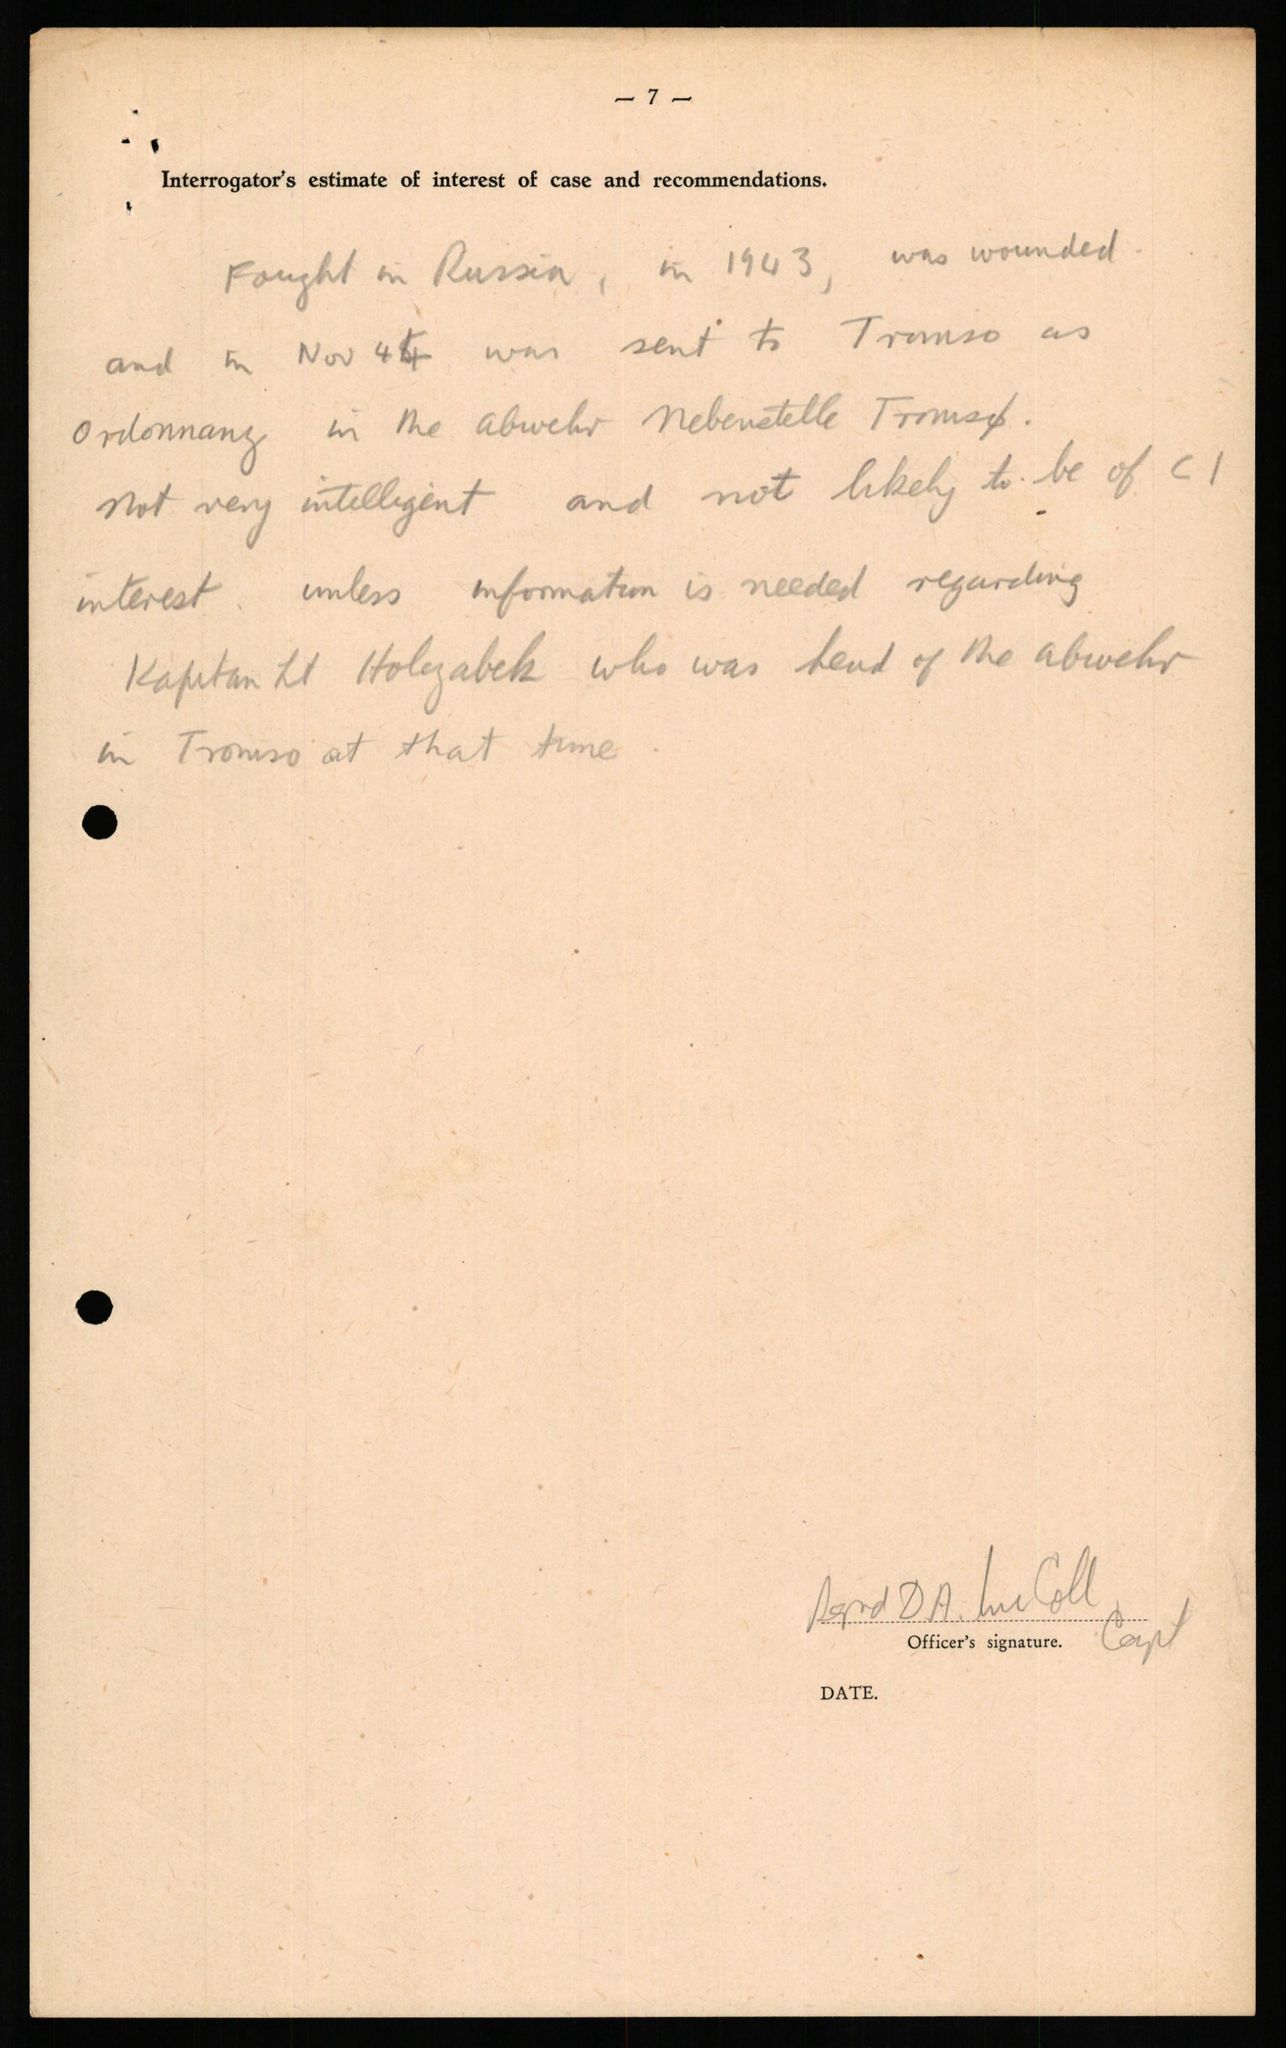 — 7 —
Interrogator's estimate of interest of case and recommendations.
Fought in Russia, in 1943, was wounded
and in Nov 44 was sent to Tromso as
Ordonnanz in the abwehr Nebenstelle Tromsø.
Not very intelligent and not likely to be of CI
interest unless information is needed regarding
Kapitan Lt Holezabek who was head of the abwehr
in Tromso at that time.
D A. McColl
Capt
Officer's signature.
DATE.